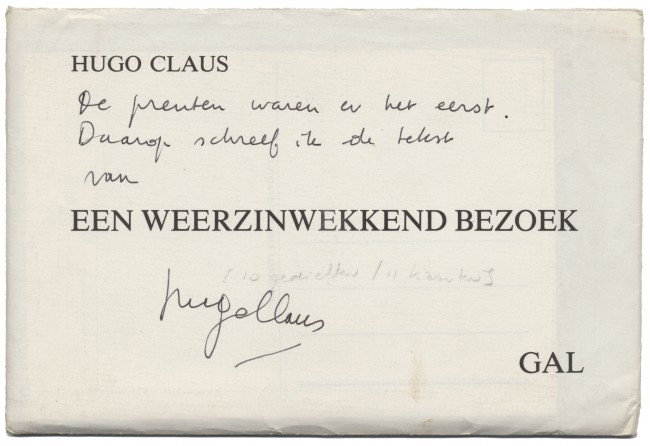 HUGO CLAUS
De prenten waren er het eerst.
Daarop schreef ik de tekst
van
EEN WEERZINWEKKEND BEZOEK
[10 gedichten / 11 kaarten]
Hugo Claus
GAL